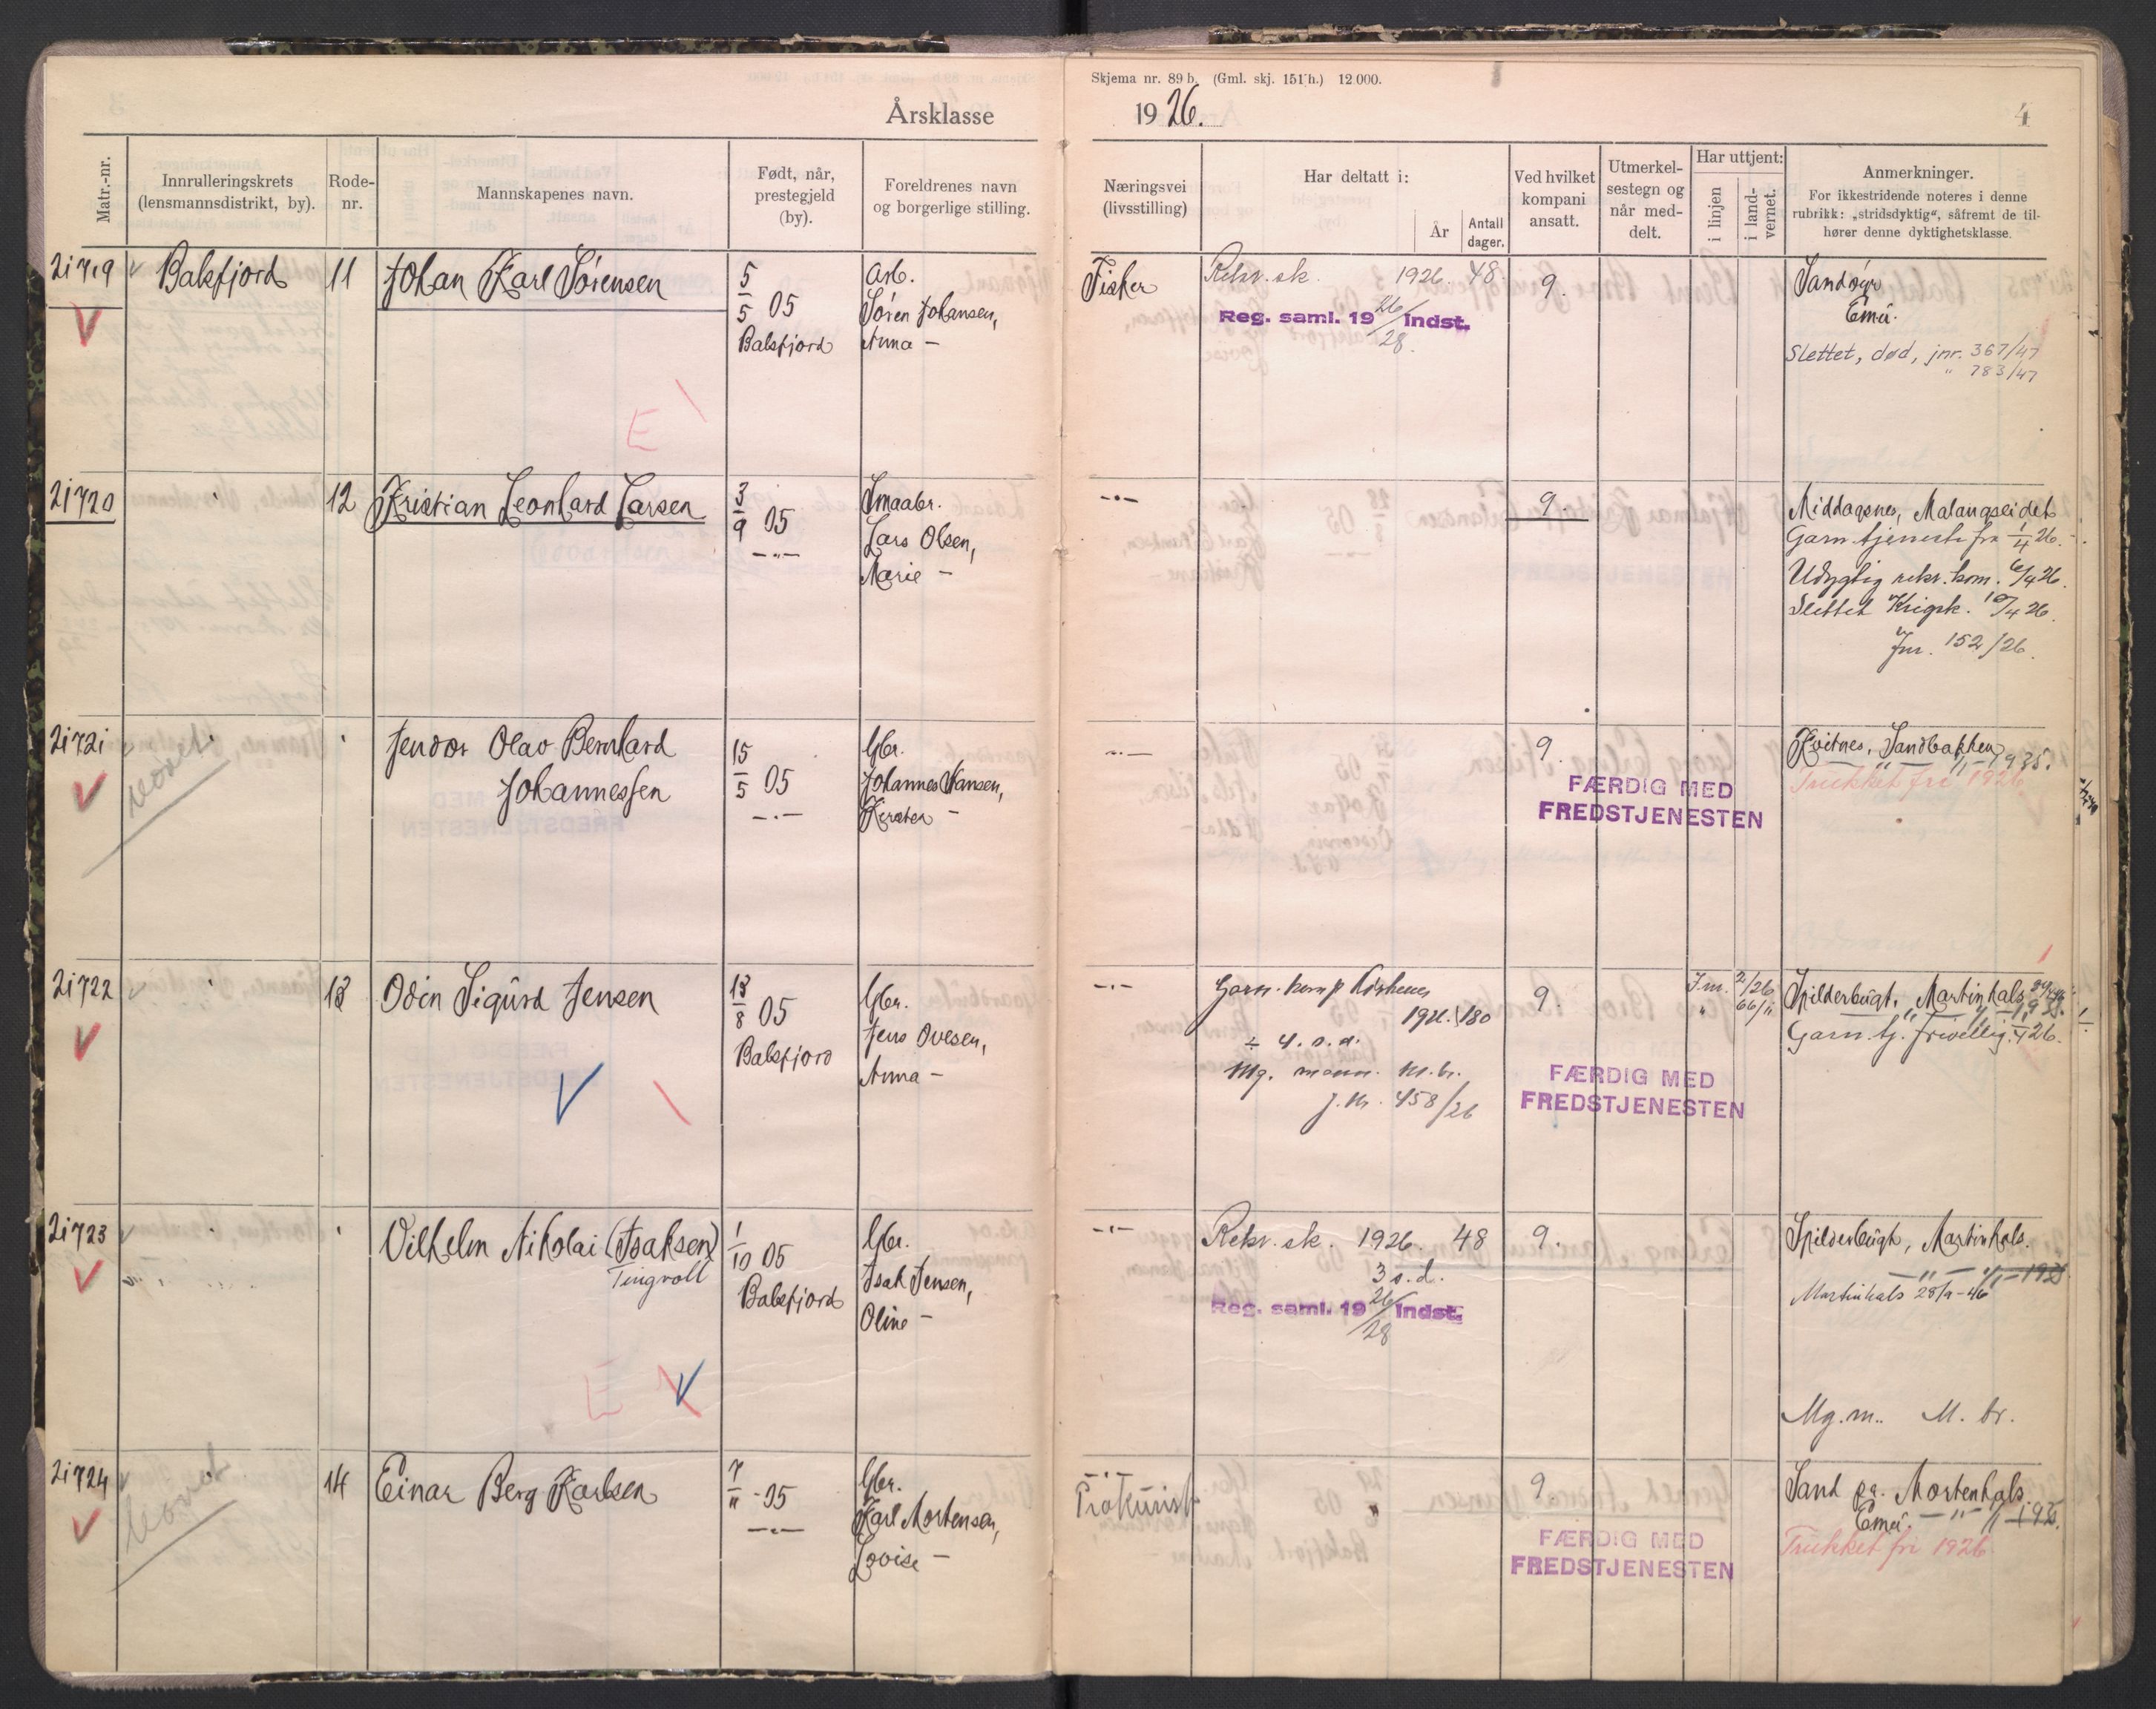 Skjema nr. 89 b. (Gml. skj. 151 h.) 12 000.
Årsklasse 1926.
4
Matr.-nr.
Innrulleringskrets
(lensmannsdistrikt, by).
Rode-
nr.
Mannskapenes navn.
Født, når,
prestegjeld
(by).
Foreldrenes navn
og borgerlige stilling.
Næringsvei
(livsstilling)
Har deltatt i:
År
Antall
dager.
Ved hvilket
kompani
ansatt.
Utmerkel-
sestegn og
når med-
delt.
Har uttjent:
i linjen
i land-
vernet.
Anmerkninger.
For ikkestridende noteres i denne
rubrikk: „stridsdyktig“, såfremt de til-
hører denne dyktighetsklasse.
21719 Balsfjord 11 Johan Karl Sørensen
5/5 05
Balsfjord
Arb.
Søren Johansen,
Anna —
Fisker
Rekr. sk. 1926. 48
Reg. saml. 19 26/28 Indst.
9.
Sandøyr
Slettet, død, jnr. 367/47
" 783/47
E
21720 12 Kristian Leonhard Larsen
3/9 05
—"—
Smaabr.
Lars Olsen,
Marie —
—"—
9.
Middagsnes, Malangseidet
Garn. tjeneste fra 1/4 26.
Udygtig rekr. kom. 6/4 26.
Slettet Krigsk. 10/4 26.
Jnr. 152/26.
21721 " Jendor Olav Bernhard
Johannessen
15/5 05
—"—
Gbr.
Johannes Hansen,
Kirsten —
—"—
9.
FÆRDIG MED
FREDSTJENESTEN
Kvitnes, Sandbakken
—"— 1/1-1935.
Trukket fri 1926
21722 13 Odin Sigurd Jensen
13/8 05
Balsfjord
Gbr.
Jens Ovesen,
Anna —
—"—
Garn. komp Kirkenes
192. 180
+ 4. s. d.
Mg. mann. M. br.
j. nr. 458/26
9.
FÆRDIG MED
FREDSTJENESTEN
J.nr. 2/26
" 66/"
Spilderbugt, Martinhals
Garn. tj. frivillig. 1/4 26.
21723 " Vilhelm Nikolai (Isaksen)
Tingvoll
1/10 05
Balsfjord
Gbr.
Isak Jensen,
Oline —
—"—
Rekr. sk. 1926. 48
3 s. d.
Reg. saml. 19 26/28 Indst.
9.
Spilderbugt, Martinhals.
—"— 1/1-1935
Martinhals
Mg. m.. M. br.
E
21724 14 Einar Berg Karlsen
7/11 - 05
—"—
Gbr.
Karl Mortensen,
Lovise —
—"—
Prokurist
"
9.
FÆRDIG MED
FREDSTJENESTEN
Sand pa. Mortenhals.
—"— 1/1-1935.
Trukket fri 1926